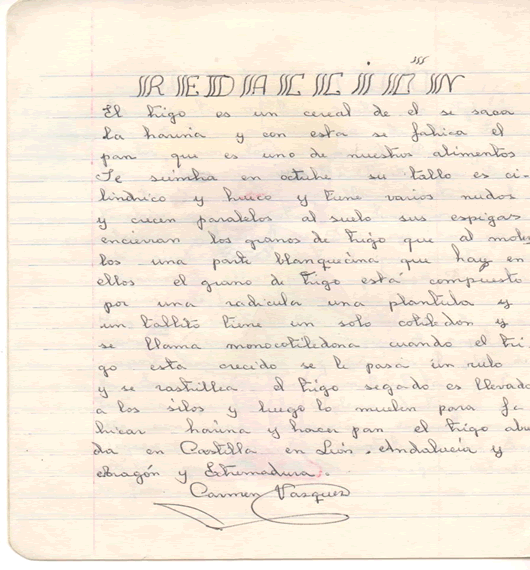 REDACCIÓN
El trigo es un cereal de el se saca
la harina y con esta se fabica el
pan que es uno de nuestros alimentos
Se siembra en octubre su tallo es ci-
líndrico y hueco y tiene varios nudos
y crecen paralelos al suelo sus espigas
encierran los granos de trigo que al moler
los una parte blanquecina que hay en
ellos el grano de trigo está compuesto
por una radicula una plantula y
un tallito tiene un solo cotiledon y
se llama monocotiledona cuando el tri
go esta crecido se le pasa un rulo
y se rastrillea el trigo segado es llevado
a los silos y luego lo muelen para fa
bricar harina y hacer pan el trigo abu
da en Castilla en León. Andalucía y
Aragón y Extremadura.
Carmen Vasquez